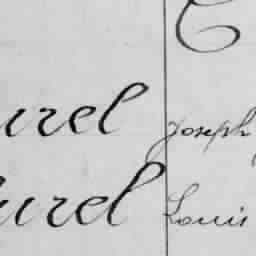 urel Joseph
urel Louis